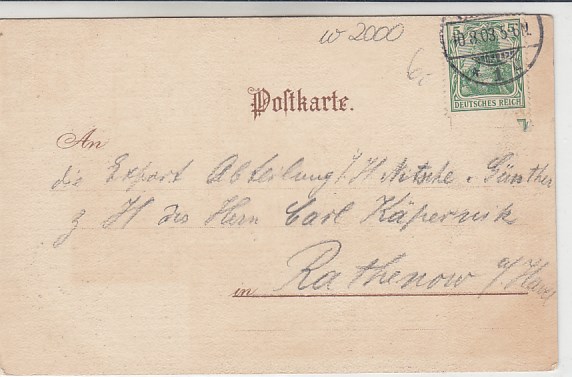 w 2000
10.8.03.5-6N.
* 1 c
DEUTSCHES REICH
6,-
Postkarte.
An
die Export Abteilung f. H Nitsche & Günther
z H des Herrn Carl Käpernik
in Rathenow a/Havel